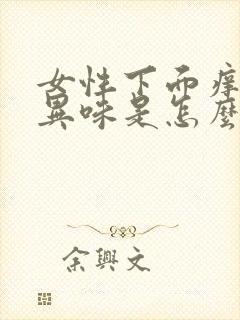 女性下面痒
異味是怎麼
余興文